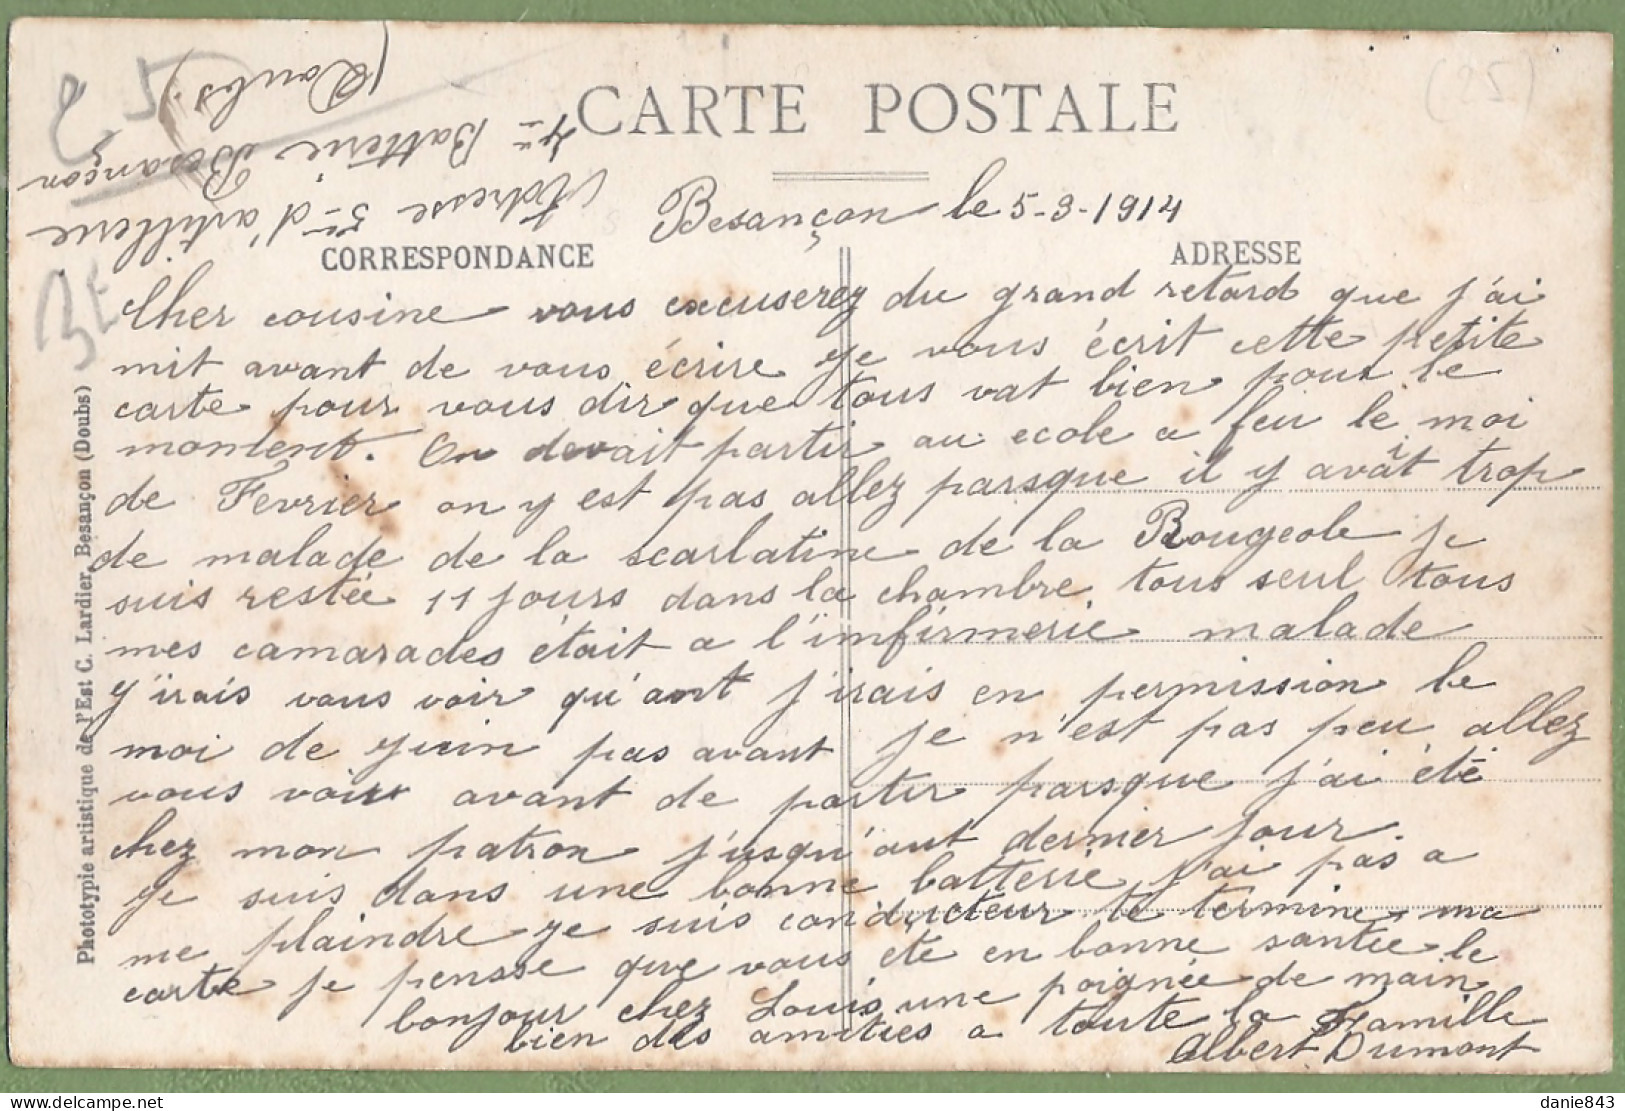 (25)
CARTE POSTALE
Adresse 5me d'artillerie
4me Batterie Besançon
(Doubs)
Besançon le 5-3-1914
CORRESPONDANCE
ADRESSE
Cher cousine vous excuserez du grand retard que j'ai
mit avant de vous écrire je vous écrit cette petite
carte pour vous dir que tous vat bien pour le
montent. On devait partir au ecole a feu le moi
de Fevrier on y est pas allez parsque il y avait trop
de malade de la scarlatine de la Rougeole je
suis restée 11 jours dans la chambre tous seul tous
mes camarades était a l'infirmerie malade
J'irais vous voir qu'ant j'irais en permission le
moi de juin pas avant je n'est pas peu allez
vous voir avant de partir parsque j'ai été
chez mon patron jusqu'aut dernier jour.
je suis dans une bonne batterie j'ai pas a
me plaindre je suis conducteur te termine ma
carte je pensse que vous ete en bonne santée le
bonjour chez Louis une poignée de main
bien des amities a toute la Famille
Albert Dumont
Phototypie artistique de l'Est C. Lardier, Besançon (Doubs)
danie843